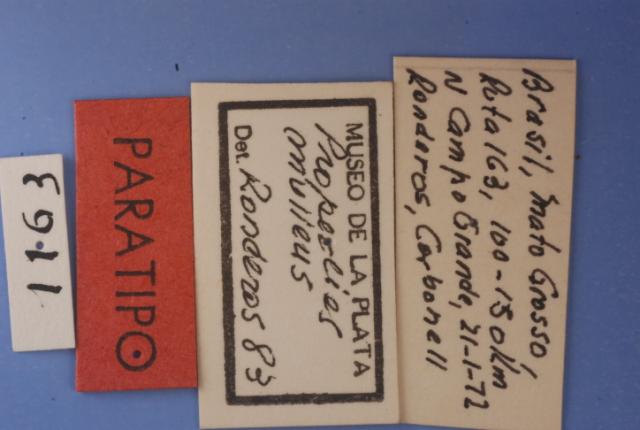 Brasil, Mato Grosso,
Ruta 163, 100-150 Km
N Campo Grande, 21-1-72
Ronderos, Carbonell
MUSEO DE LA PLATA
Propedies
Det. Ronderos 83
PARATIPO
1163